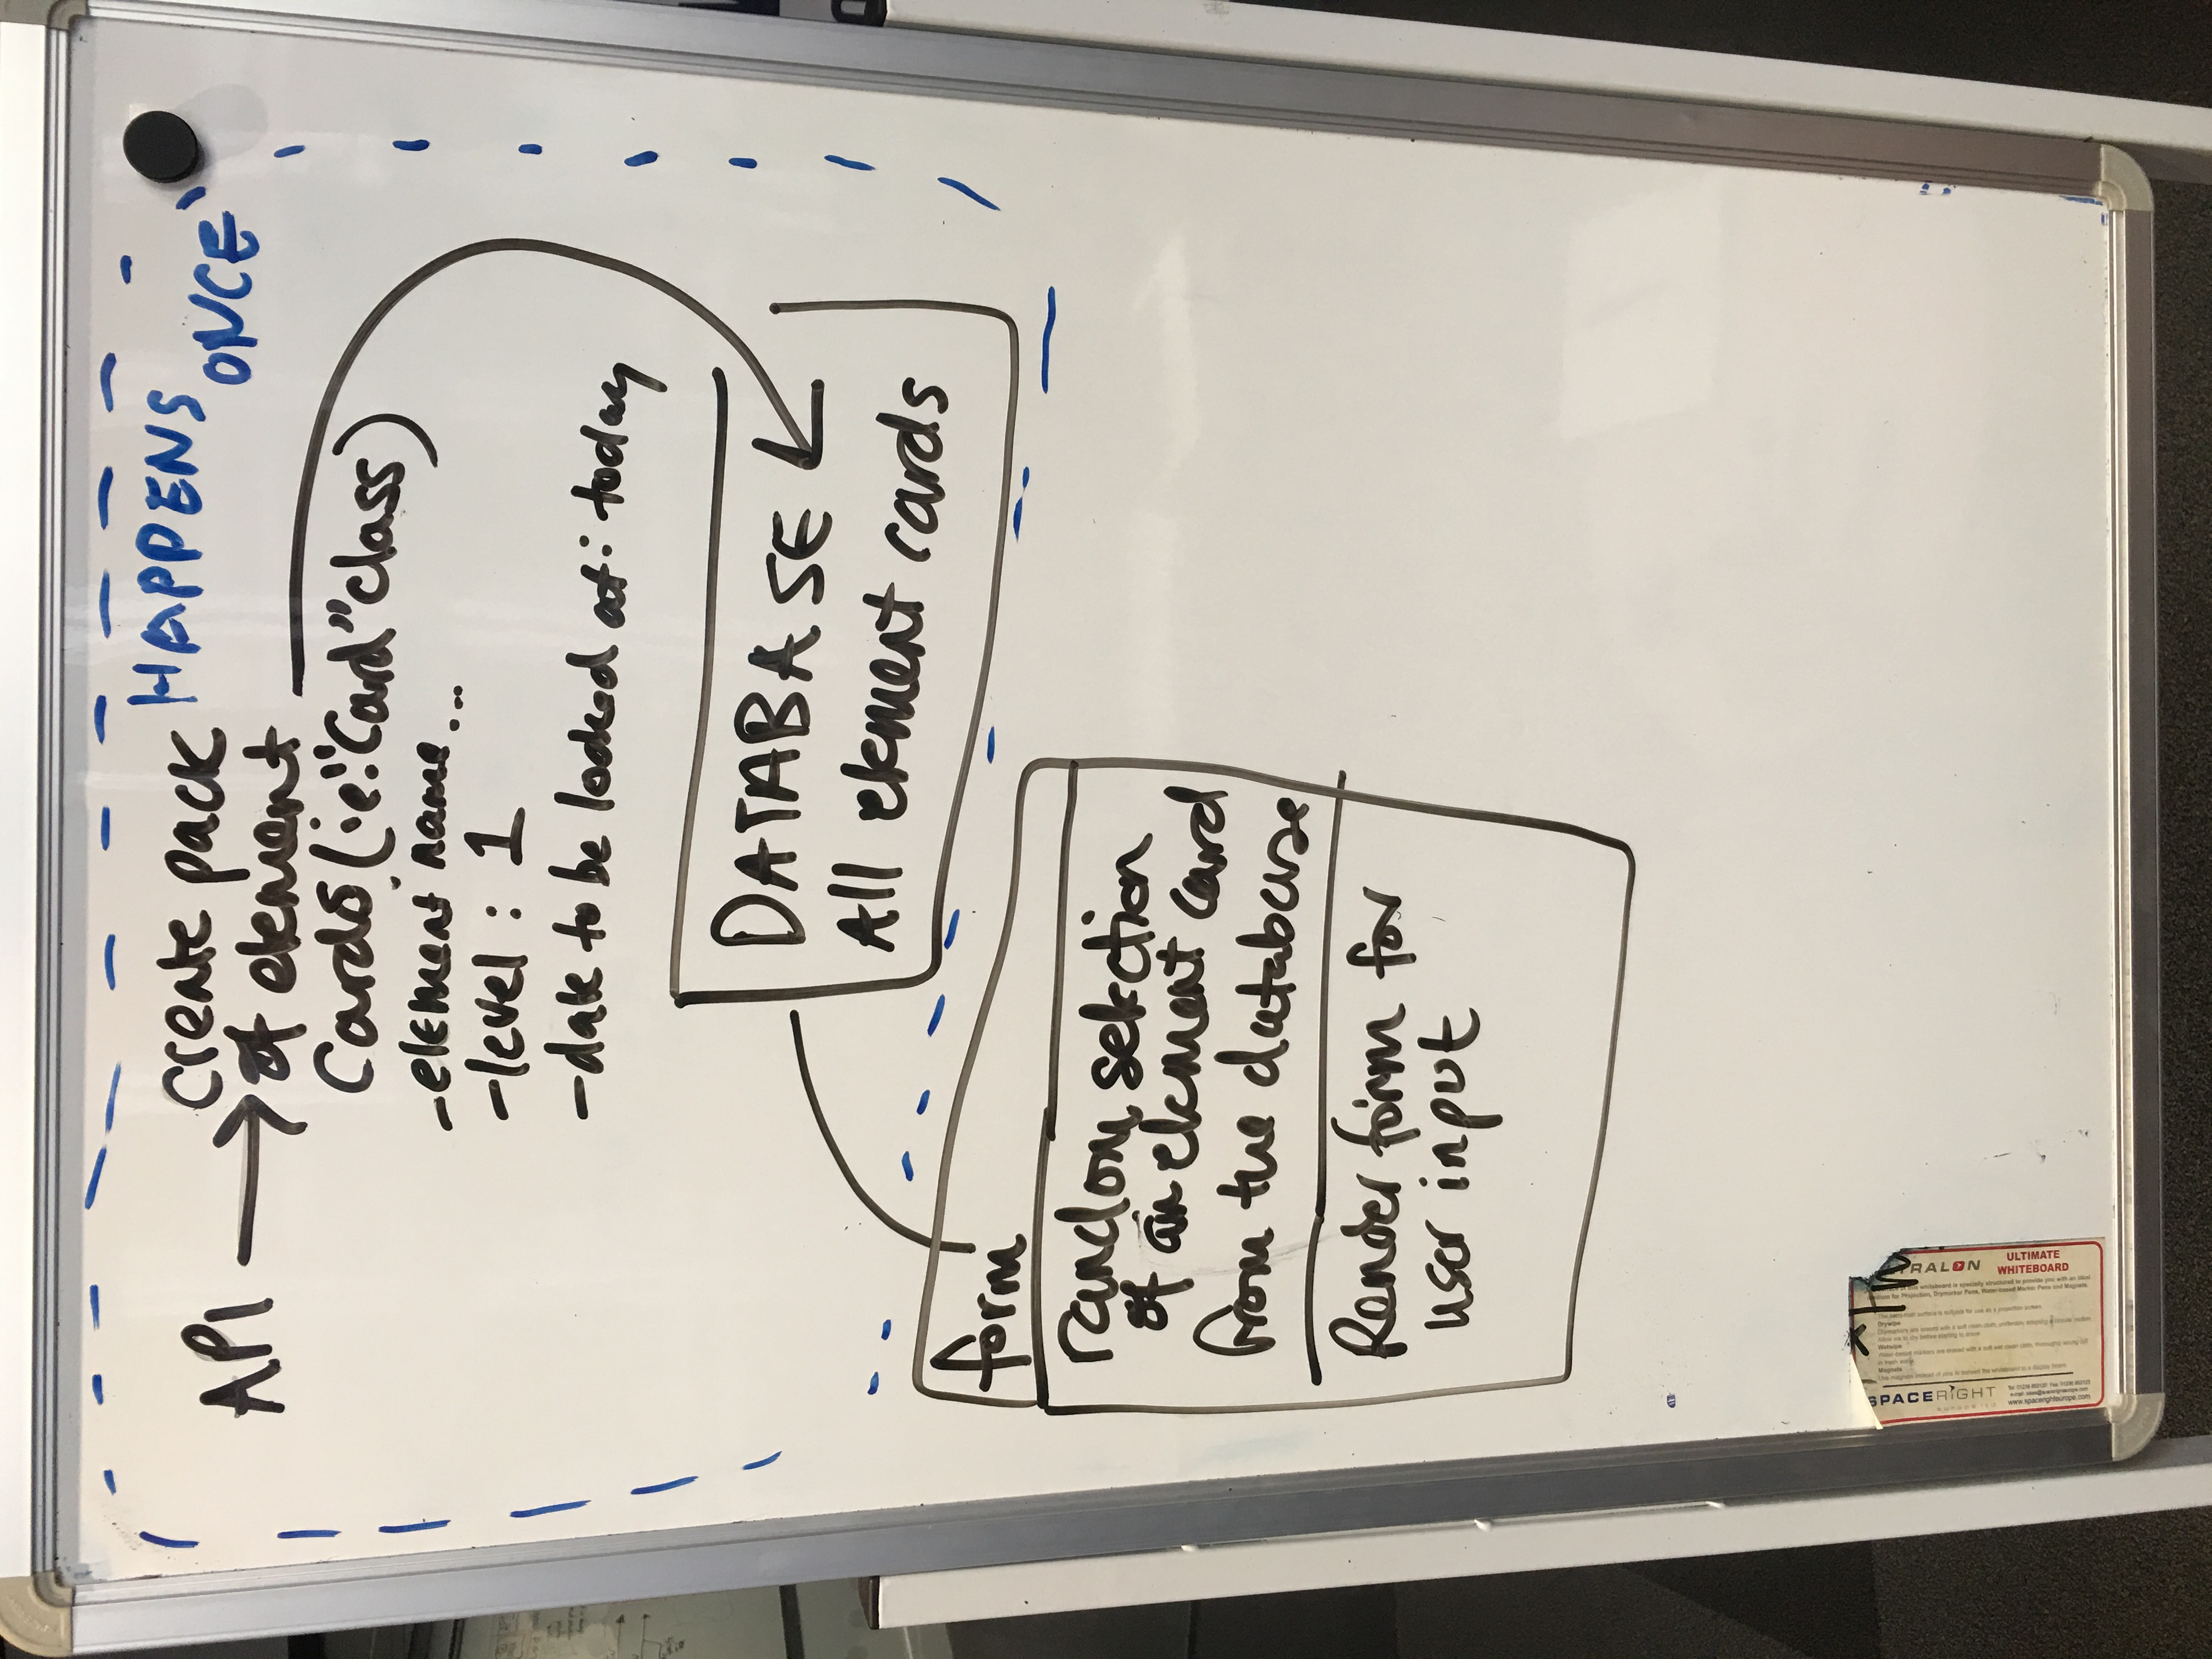 HAPPENS
ONCE
API
create pack
of element
Cards (ie: "Card" class)
- element name...
- level : 1
- date to be looked at: today
DATABASE
All element cards
form
random selection
of an element card
from the database
Render form for
user input
SPACERIGHT
ULTIMATE
WHITEBOARD